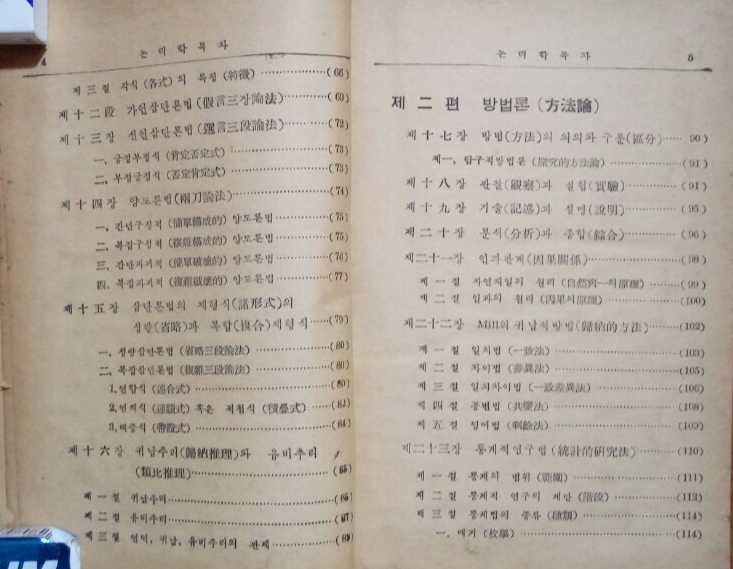 4
논리학목차
제三절 각식(各式)의 특징(特徵)……………(66)
제十二段 가언삼단론법(假言三段論法)……………(69)
제十三장 선언삼단론법(選言三段論法)……………(72)
一, 긍정부정식(肯定否定式)……………(73)
二, 부정긍정식(否定肯定式)……………(73)
제十四장 양도론법(兩刀論法)……………(74)
一, 간단구성적(簡單構成的) 양도론법……………(75)
二, 복잡구성적(複雜構成的) 양도론법……………(75)
三, 간단파괴적(簡單破壞的) 양도론법……………(76)
四, 복잡파괴적(複雜破壞的) 양도론법……………(77)
제十五장 삼단론법의 제형식(諸形式)의
생략(省略)과 복합(複合)제형식……(79)
一, 생략삼단론법(省略三段論法)……………(80)
二, 복잡삼단론법(複雜三段論法)……………(80)
1. 연합식(連合式)……………(80)
2. 연쇄식(連鎖式) 혹은 적첩식(積疊式)……………(82)
3. 대증식(帶證式)……………(84)
제十六장 귀납추리(歸納推理)와 유비추리
(類比推理)……………(85)
제一절 귀납추리……………(86)
제二절 유비추리……………(87)
제三절 연역, 귀납, 유비추리의 관계……………(89)
논리학목차
5
제二편 방법론(方法論)
제十七장 방법(方法)의 의의와 구분(區分)……90)
제一, 탐구적방법론(探究的方法論)……………(91)
제十八장 관찰(觀察)과 실험(實驗)……………(91)
제十九장 기술(記述)과 설명(說明)……………(95)
제二十장 분석(分析)과 종합(綜合)……………(96)
제二十一장 인과관계(因果關係)……………(98)
제一절 자연제일의 원리(自然齊一의原理)……………(99)
제二절 인과의 원리(因果의原理)……………(100)
제二十二장 Mill의귀납적방법(歸納的方法)……………(102)
제一절 일치법(一致法)……………(103)
제二절 차이법(差異法)……………(105)
제三절 일치차이법(一致差異法)……………(106)
제四절 공변법(共變法)……………(108)
제五절 잉여법(剩餘法)……………(109)
제二十三장 통계적연구법(統計的硏究法)……………(110)
제一절 통계의 범위(範圍)……………(111)
제二절 통계적 연구의 계단(階段)……………(112)
제三절 통계법의 종류(種類)……………(114)
一. 매거(枚擧)……………(114)